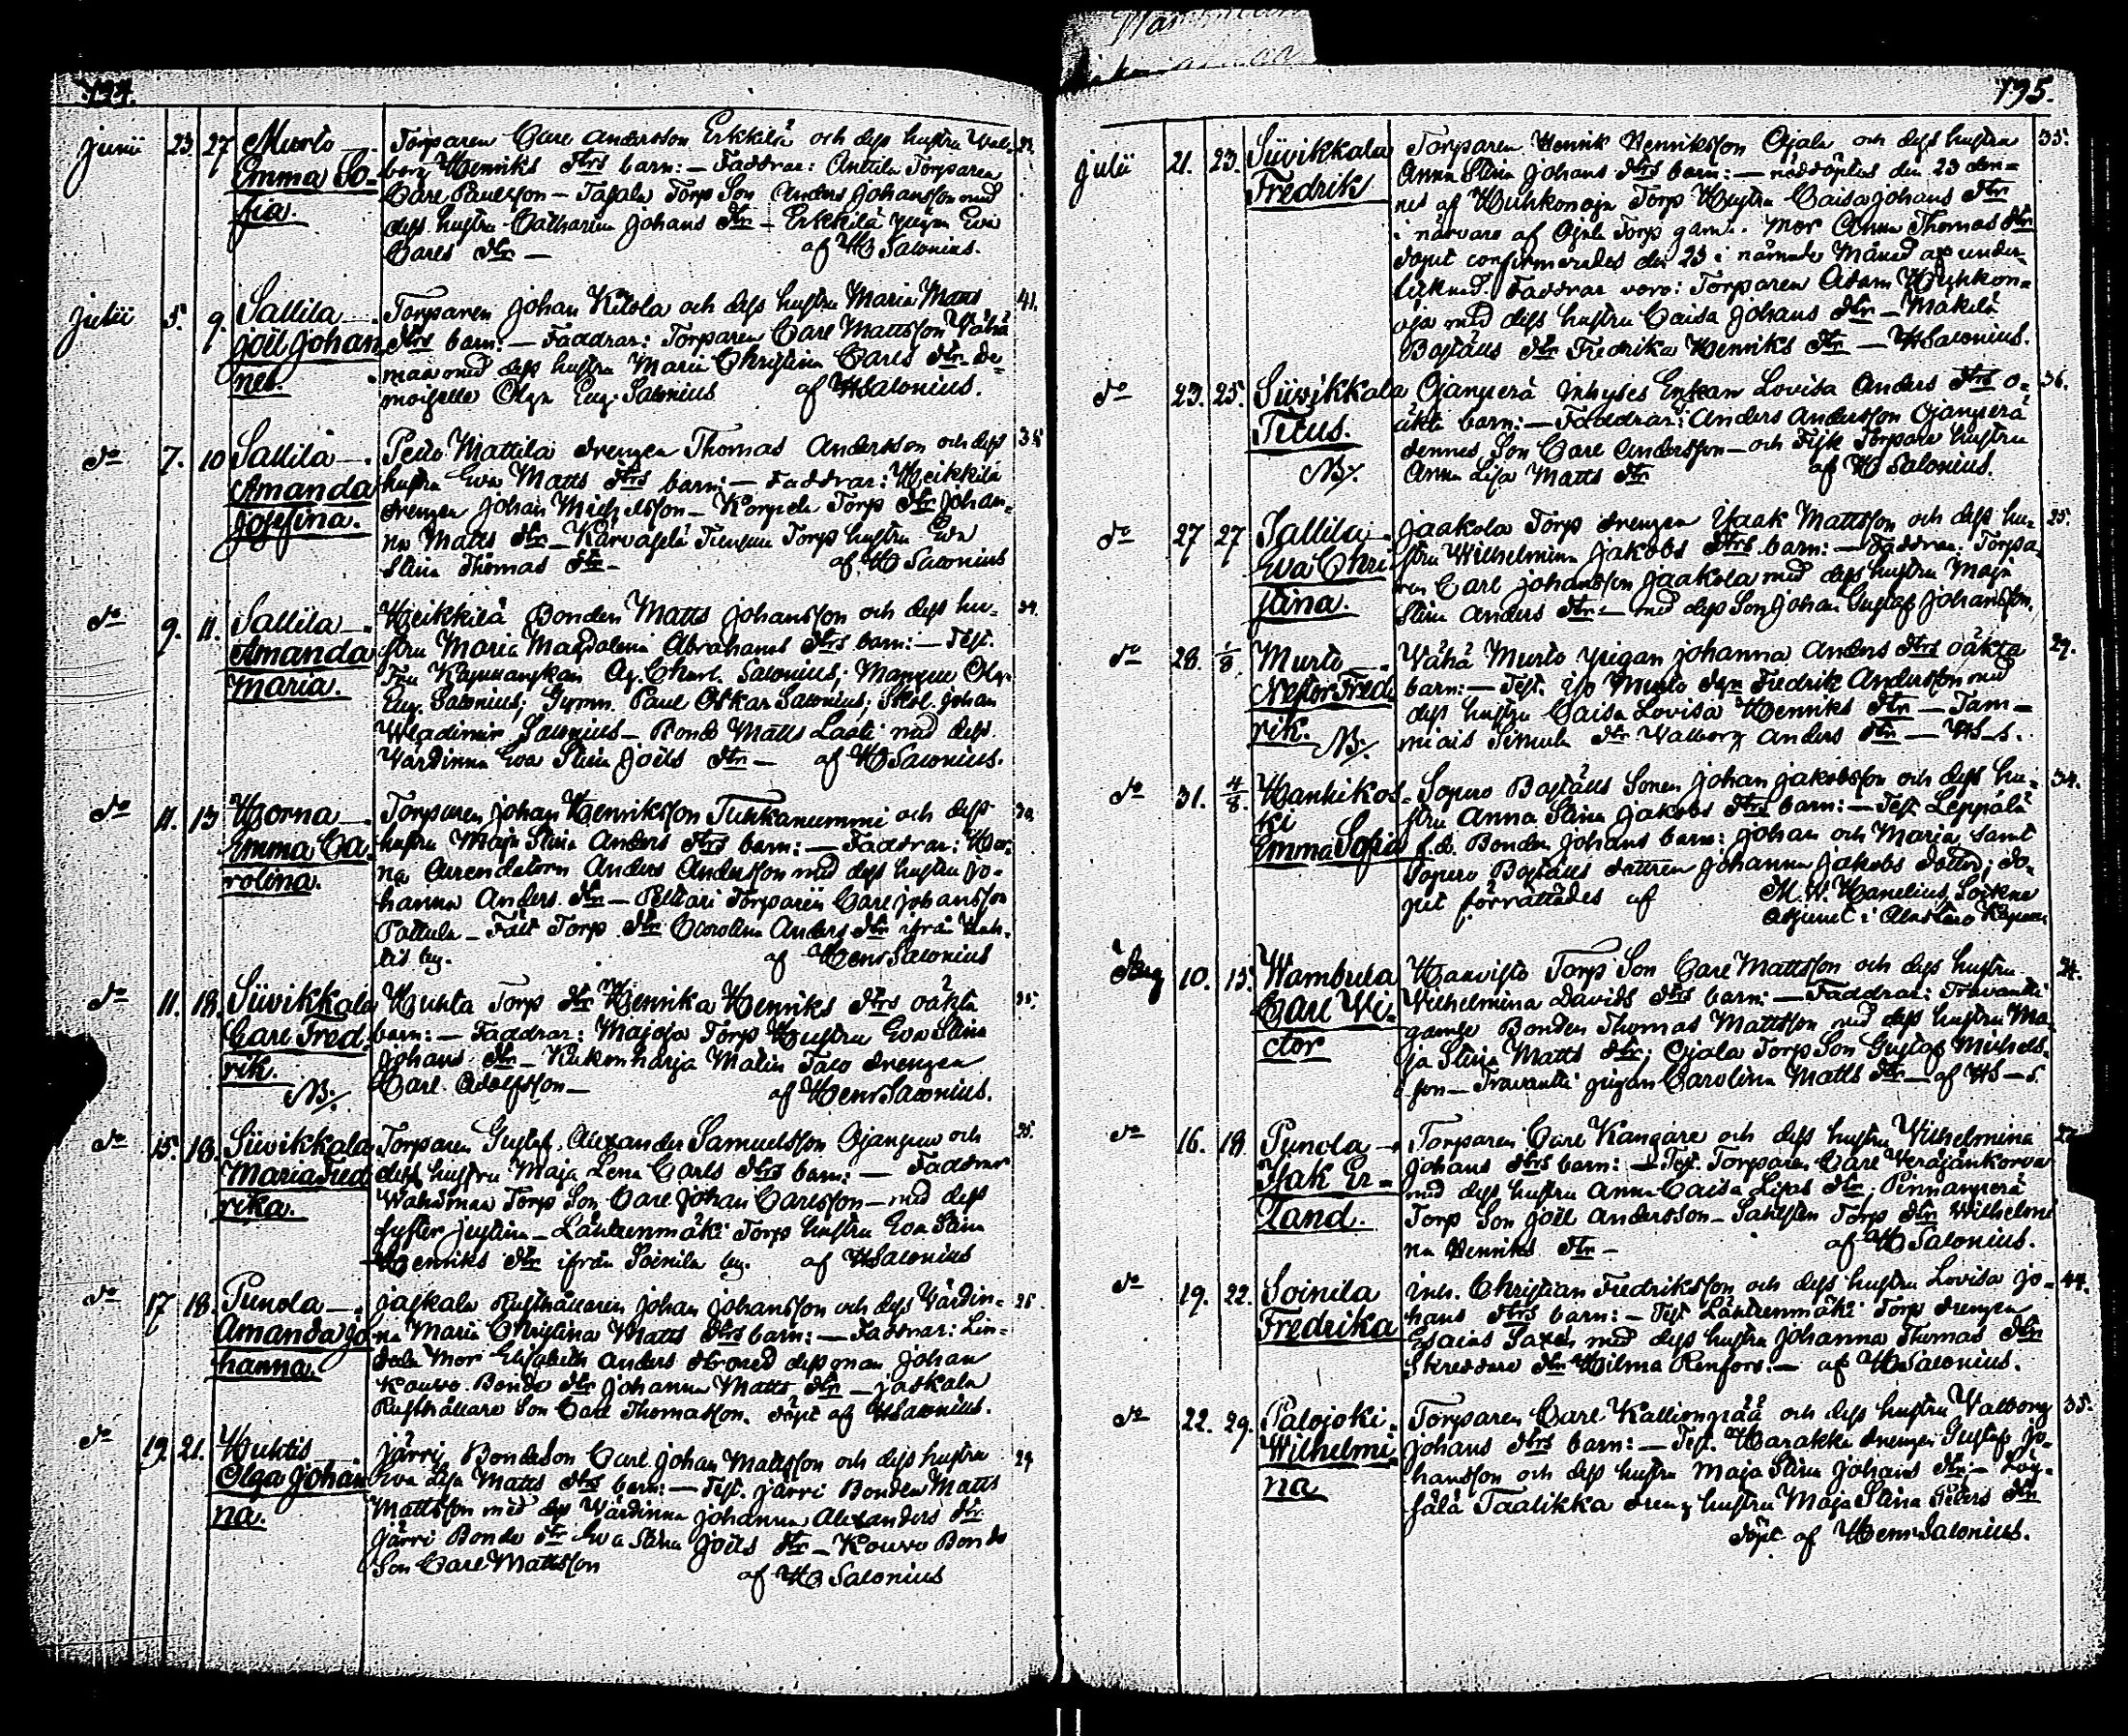 194.
Junii 23. 27 Murto — Torparen Carl Andersson Erkkilä och dess hustru Wal-
Emma So- borg Henriks dtrs barn: — Faddrar: Anttila Torparen
fia. Carl Paulsson — Torp Son Anders Johansson med
dess hustru Catharina Johans dtr — Erkkilä pigan Eva
Carls dtr — af HSalonius.
Julii 5. 9. Sallila — Torparen Johan Kitola och dess hustru Maria Matts 41.
Joel Johan dtrs barn: — Faddrar: Torparen Carl Mattsson Wähä
nes. maa med dess hustru Maria Christina Carls dtr. De-
moiselle Olga Eug. Salonius af HSalonius.
do 7. 10 Sallila — Mattila drengen Thomas Andersson och dess
Amanda hustru Eva Matts dtrs barn: — Faddrar: Heikkilä
Josefina. drengen Johan Michelsson — Korpela Torp dtr Johan-
na Matts dtr — Torp hustru Eva
Stina Thomas dtr — af HSalonius
do 9. 11. Sallila — Heikkilä Bonden Matts Johansson och dess hu-
Amanda stru Maria Magdalena Abrahams dtrs barn: — Test.
Maria. Fru Charl. Salonius; Olga
Eug. Salonius; Gymn. Paul Oskar Salonius; Skol. Johan
Wladimir Salonius — Bond Matts Lasti med dess
Wärdinna Eva Stina Joels dtr — af HSalonius.
do 11. 13 Horna — Torparen Johan Henriksson Tuhkanummi och dess
Emma Ca- hustru Maja Stina Anders dtrs barn: — Faddrar: Hor-
rolina. na Arrendatorn Anders Andersson med dess hustru Jo-
hanna Anders dtr — Pelttari Torparen Carl Johansson
Torp dtr Carolina Anders dtr ifrån Huh-
tis by. af HenrSalonius
do 11. 18. Siivikkala Huhta Torp dtr Henrika Henriks dtrs oäkta
Carl Fred- barn: — Faddrar: Majoja Torp Hustru Eva Stina
rik. Johans dtr — Kukonharja Malin Talo drengen
NB. Carl Adolfsson — af HenrSalonius.
do 15. 18. Siivikkala Torparen Gustaf Alexander Samuelsson och
Maria Fred dess hustru Maja Lena Carls dtrs barn: — Faddrar
rika. Torp Son Carl Johan Carlsson — med dess
syster Justina — Länkenmäki Torp hustru Eva Stina
Henriks dtr ifrån Soinila by. af HSalonius
do 17 18. Punola — Jaskala Rusthållaren Johan Johansson och dess Wärdin-
Amanda Jo na Maria Christina Matts dtrs barn: — Faddrar: Lin-
hanna. Mor Elisabeth Anders dtr med dess man Johan
Kouvo Bonde dtr Johanna Matts dtr — Jaskala
Rusthållare Son Carl Thomasson. döpt af HSalonius.
do 19. 21. Huhtis Järri Bonde Son Carl Johan Mattsson och dess hustru
Olga Johan Eva Lisa Matts dtrs barn: — Test. Järri Bonden Matts
na. Mattsson med dess Wärdinna Johanna Alexanders dtr
Järri Bonde dtr Eva Stina Joels dtr — Kouvo Bonde
Son Carl Mattsson af HSalonius
195.
Julii 21. 23. Siivikkala Torparen Henrik Henriksson Ojala och dess hustru 35.
Fredrik Anna Stina Johans dtrs barn: — nöddöptes den 23 den-
nes af Huhkonoja Torp Hustru Caisa Johans dtr
i närvaro af Ojala Torp gamla Mor Anna Thomas dtr
dopet confirmerades den 23 i nämnde Månad af under-
tecknad. Faddrar voro: Torparen Adam Huhkon-
oja med dess hustru Caisa Johans dtr — Mäkilä
Boställs dtr Fredrika Henriks dtr — HSalonius.
do 23. 25. Siivikkala Ojanperä Inhyses Enkan Lovisa Anders dtrs o- 36.
Titus. äkta barn: — Faddrar: Anders Andersson Ojanperä
NB. dennes Son Carl Andersson — och Torpare hustru
Anna Lisa Matts dtr af HSalonius.
do 27 27 Sallila — Jaakola Torp drengen Isaak Mattsson och dess hu- 25.
Eva Chri stru Wilhelmina Jakobs dtrs barn: — Faddrar: Torpa-
stina. ren Carl Johansson Jaakola med dess hustru Maja
Stina Anders dtr — med dess Son Johan Gustaf Johansson.
do 28. 1/8. Murto — Wähä Murto pigan Johanna Anders dtrs oäkta 29.
Nestor Fred barn: — Test. Iso Murto Fredrik Andersson med
rik. NB. dess hustru Caisa Lovisa Henriks dtr — Tam-
miais Simula dtr Walborg Anders dtr — HS—s.
do 31. 4/8. Hanhikos- Sopero Boställs Sonen Johan Jakobsson och dess hu- 34.
ki stru Anna Stina Jakobs dtrs barn: — Test Leppälä
Emma Sofia f.d. Bonden Johans barn: Johan och Maria, samt
Sopero Boställs dottren Johanna Jakobs dotter; do-
pet förrättades af M. W. Hanelius, Sockne
adjunct i Alastaro
Aug 10. 15. Wambula Torp Son Carl Mattsson och dess hustru 24.
Carl Vi- Wilhelmina Davids dtrs barn: — Faddrar: Travantti
ctor gamle Bonden Thomas Mattsson med dess hustru Ma-
ja Stina Matts dtr; Ojala Torp Son Gustaf Michels-
son — Travantti pigan Carolina Matts dtr — af HS—s.
do 16. 18 Punola — Torparen Carl Kangare och dess hustru Wilhelmina
Isak Er- Johans dtrs barn: — Test. Torparen Carl Weräjänkorva
land. med dess hustru Anna Caisa Lisas dtr; Pinnanperä
Torp Son Joel Andersson — Sahlsten Torp dtr Wilhelmi
na Henriks dtr — af HSalonius.
do 19. 22. Soinila Inh. Christian Fredriksson och dess hustru Lovisa Jo- 44.
Fredrika hans dtrs barn: — Test Länkenmäki Torp drengen
Esaias Saxen med dess hustru Johanna Thomas dtr
Skreddare dtr Wilma Renfors. — af HSalonius.
do 22. 29. Palojoki. Torparen Carl Kallionpää och dess hustru Walborg 35.
Wilhelmi- Johans dtrs barn: — Test. Harakka drengen Gustaf Jo-
na hansson och dess hustru Maja Stina Johans dtr — Loi-
Taalikka dreng hustru Maja Stina Peters dtr
döpt af HenrSalonius.